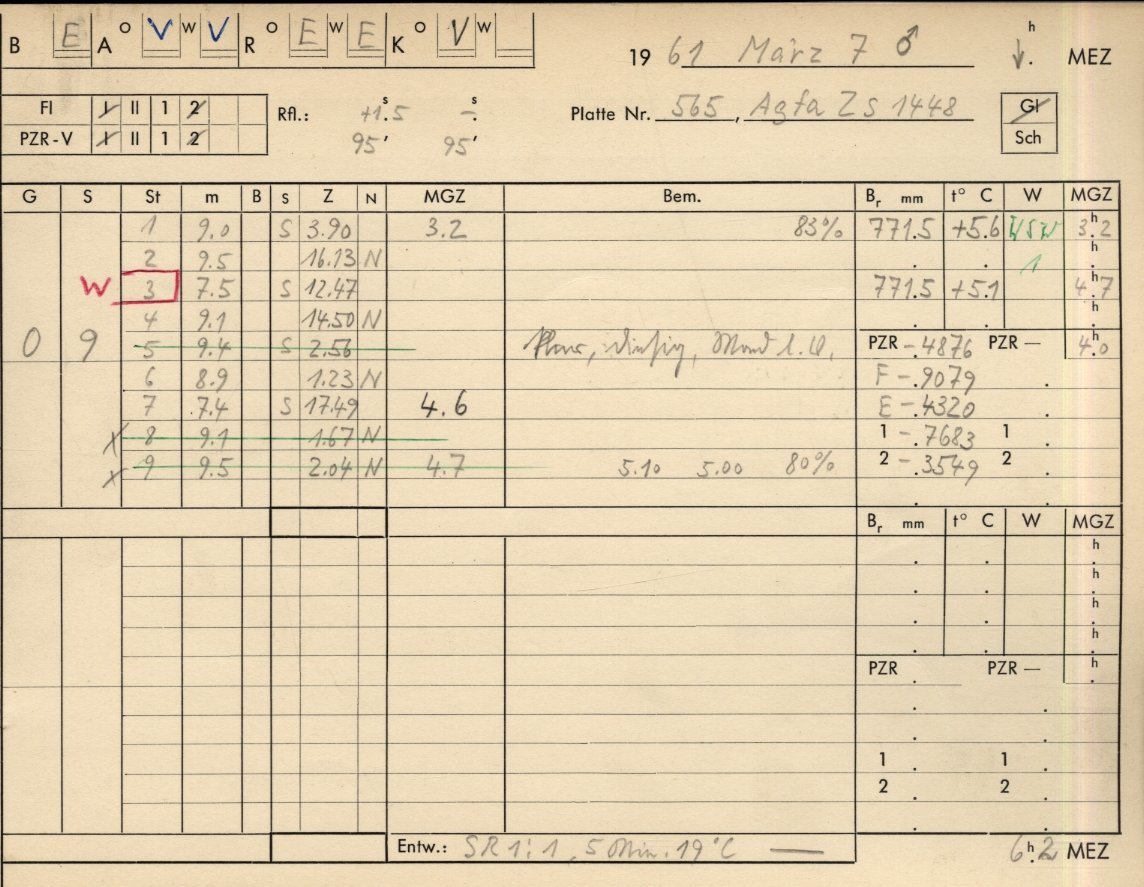 B E A o V w V R o E w E K o V w 19 61 März 7 ♂ h ↓. MEZ
FI I II 1 2 Rfl.: +1.s5 –.s Platte Nr. 565, Agfa ZS 1448 Gl
PZR-V I II 1 2 95' 95' Sch
G S St m B S Z N MGZ Bem. Br mm t° C W MGZ
1 9.0 S 3.90 3.2 83% 771.5 +5.6 WSW 3.h2
2 9.5 16.13 N . . 1 h.
W 3 7.5 S 12.47 771.5 +5.1 4.h7
4 9.1 14.50 N . . h.
0 9 5 9.4 S 2.56 Mond PZR –.4876 PZR — 4.h0
6 8.9 1.23 N F –.9079 .
7 7.4 S 17.49 4.6 E –.4320 .
x 8 9.1 1.67 N 1 –.7683 1 .
x 9 9.5 2.04 N 4.7 5.10 5.00 80% 2 –.3549 2 .
Br mm t° C W MGZ
. . h.
. . h.
. . h.
. . h.
PZR . PZR — h.
. .
. .
1 . 1 .
2 . 2 .
. .
Entw.: SR 1:1, 5 Min. 19°C — 6h.2 MEZ